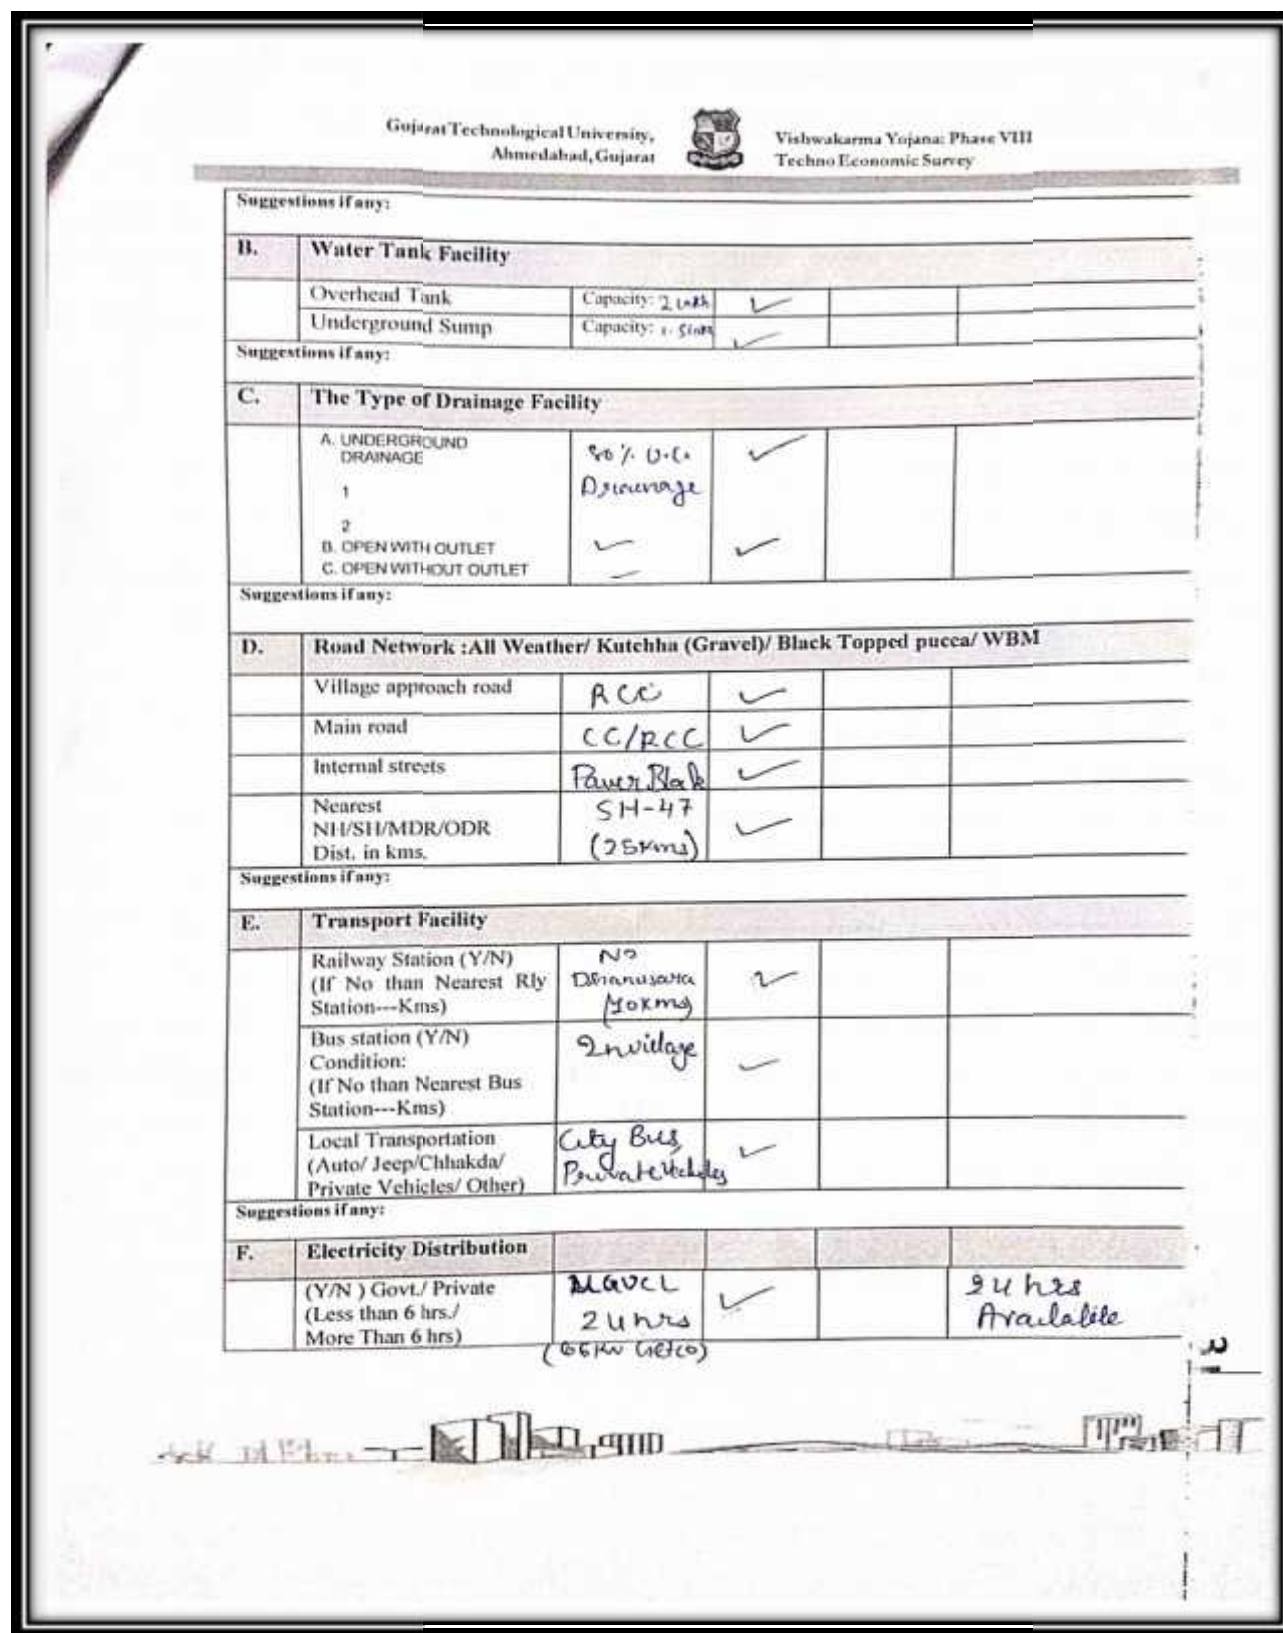 Gujarat Technological University,
Ahmedabad, Gujarat
Vishwakarma Yojana: Phase VIII
Techno Economic Survey
Suggestions if any:
B. Water Tank Facility
Overhead Tank Capacity: 2 Lakh ✓
Underground Sump Capacity: ✓
Suggestions if any:
C. The Type of Drainage Facility
A. UNDERGROUND
DRAINAGE
80% U.G.
Drainage
✓
1
2
B. OPEN WITH OUTLET ✓ ✓
C. OPEN WITHOUT OUTLET –
Suggestions if any:
D. Road Network :All Weather/ Kutchha (Gravel)/ Black Topped pucca/ WBM
Village approach road RCC ✓
Main road CC/RCC ✓
Internal streets Paver Block ✓
Nearest
NH/SH/MDR/ODR
Dist. in kms.
SH-47
(25kms)
✓
Suggestions if any:
E. Transport Facility
Railway Station (Y/N)
(If No than Nearest Rly
Station---Kms)
No
✓
Bus station (Y/N)
Condition:
(If No than Nearest Bus
Station---Kms)
In village
✓
Local Transportation
(Auto/ Jeep/Chhakda/
Private Vehicles/ Other)
City Bus,
Private Vehicles
✓
Suggestions if any:
F. Electricity Distribution
(Y/N ) Govt./ Private
(Less than 6 hrs./
More Than 6 hrs)
24 hrs
(66KV Getco)
✓
24 hrs
Available
3